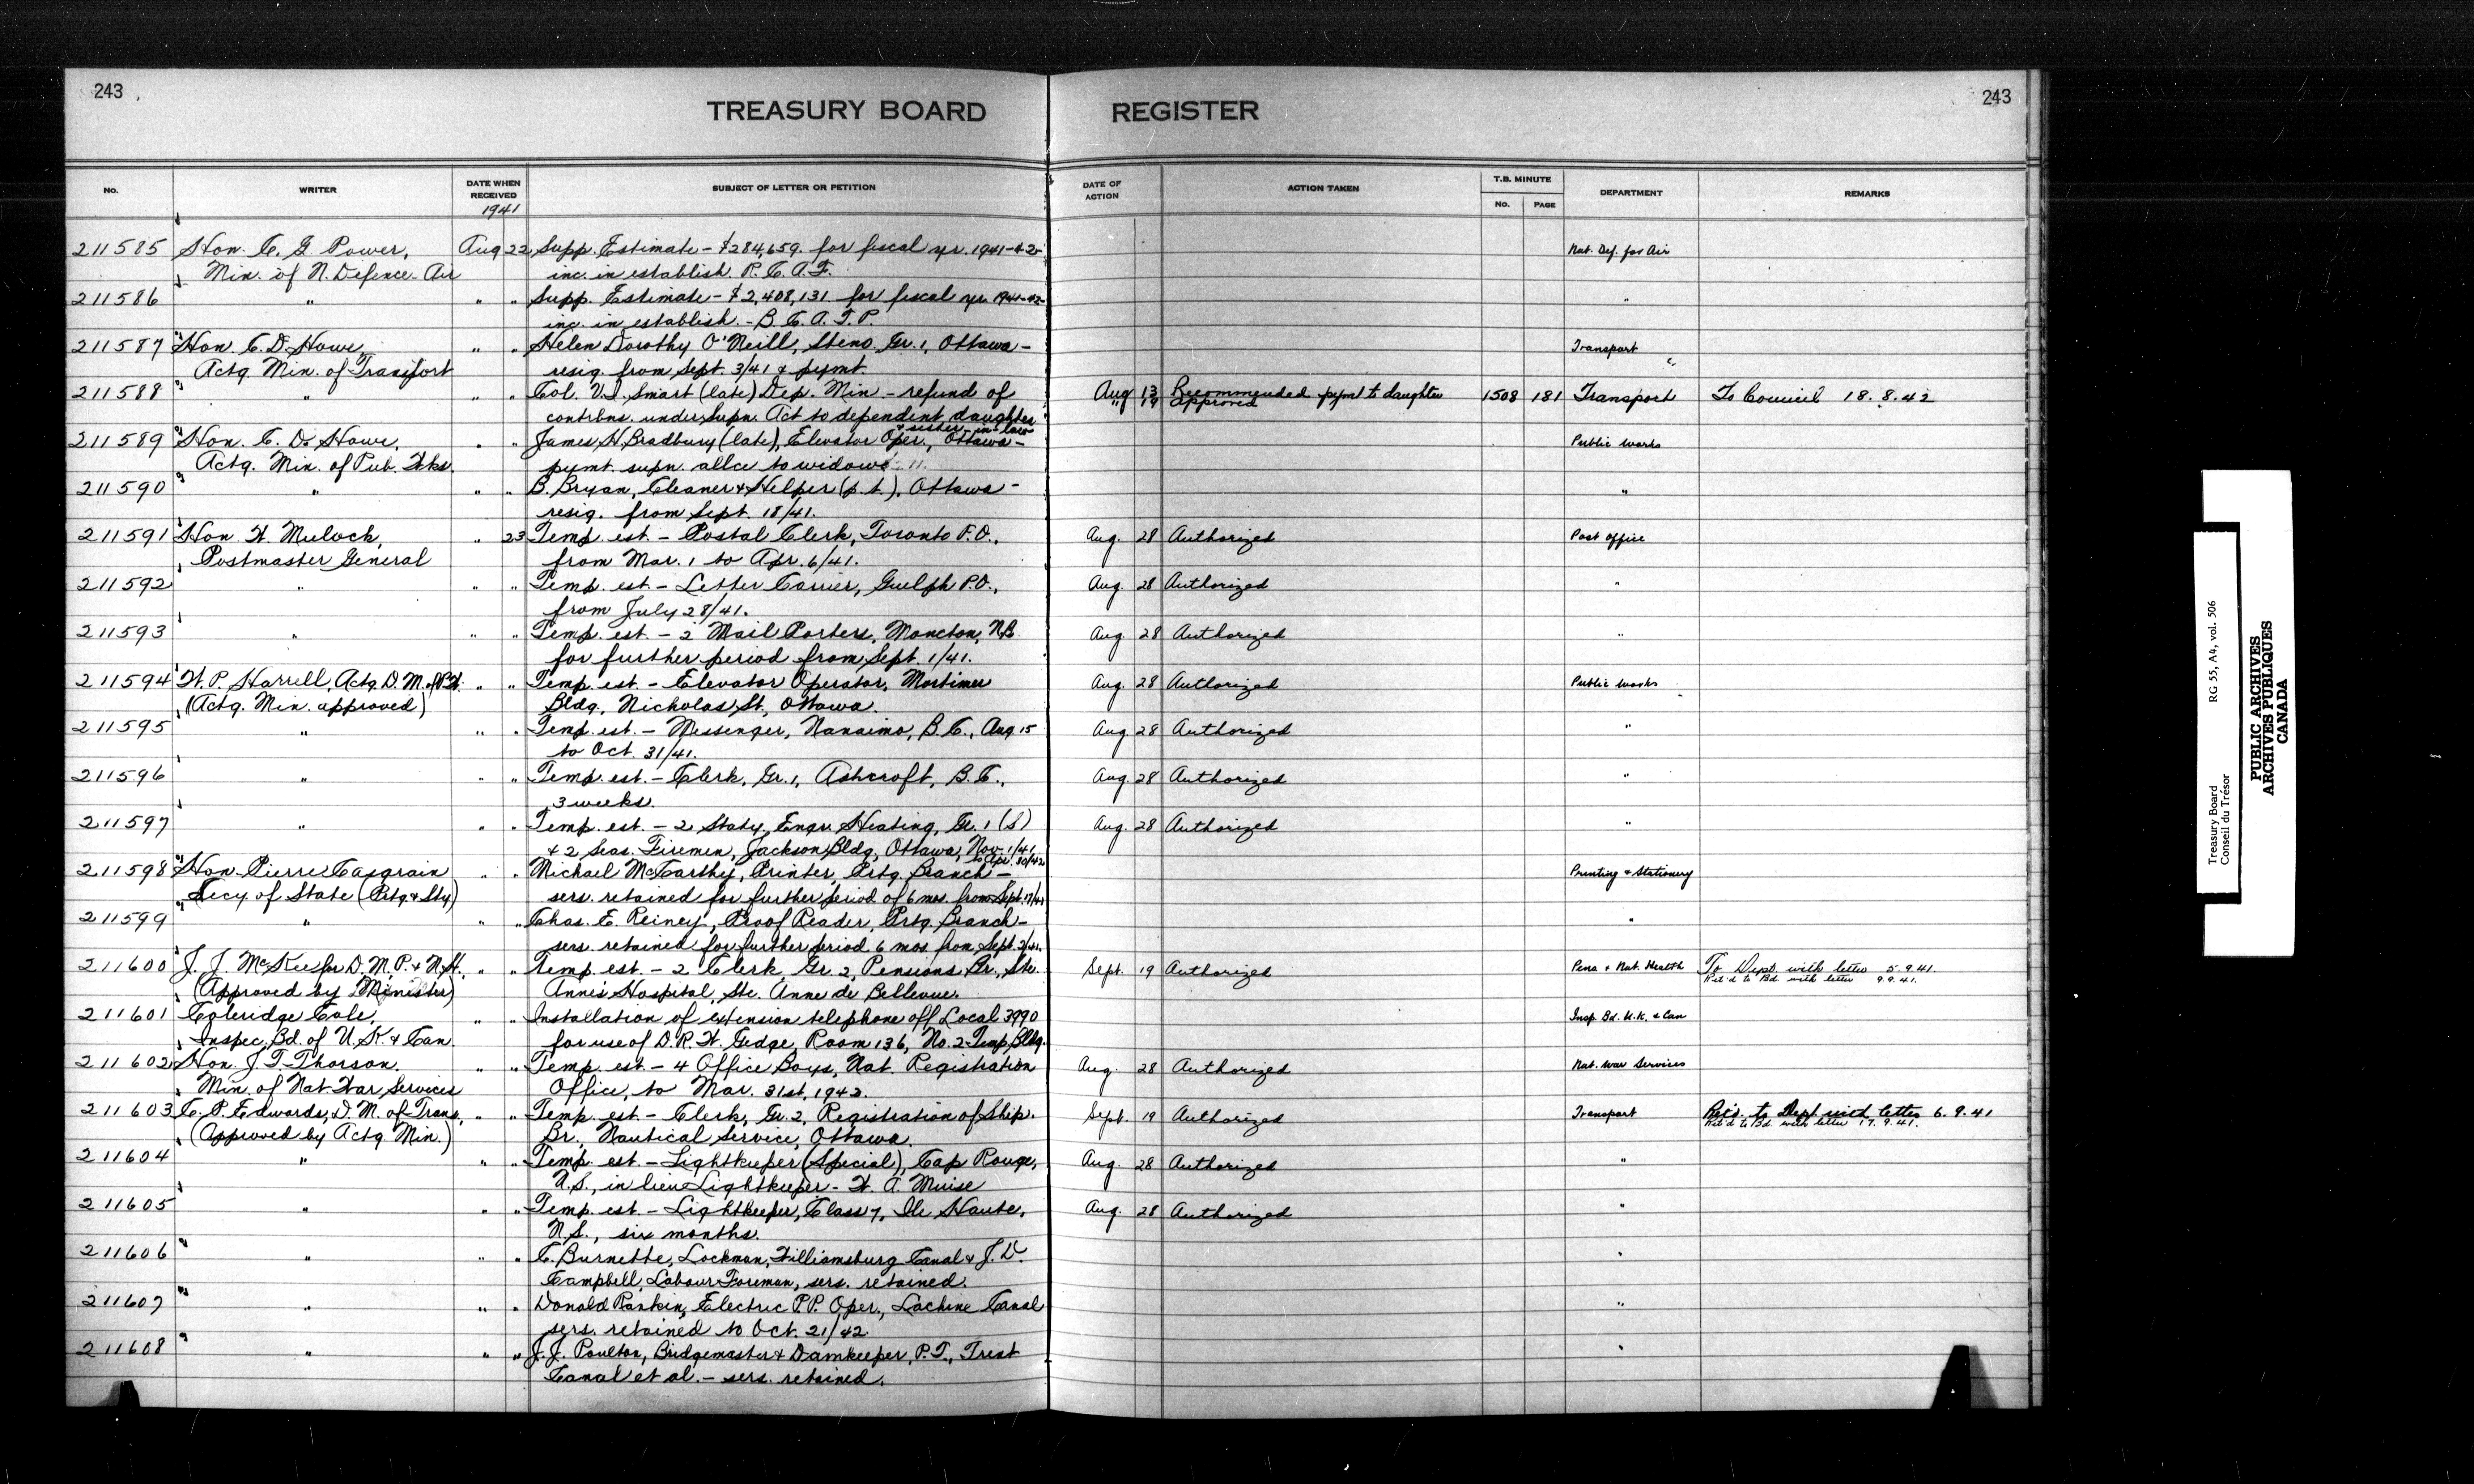 243
243
TREASURY BOARD REGISTER
No. WRITER DATE WHEN RECEIVED SUBJECT OF LETTER OR PETITION DATE OF ACTION ACTION TAKEN T.B. MINUTE No. PAGE DEPARTMENT REMARKS
1941
211585 Hon. C. G. Power, Aug 22 Supp. Estimate - $284,659. for fiscal yr. 1941-42- Nat. Def. for Air
Min. of N. Defence - Air inc. in establish. R. C. A. F.
211586 " " " Supp. Estimate - $2,408,131 for fiscal yr. 1941-42- "
inc. in establish. - B. C. A. T. P.
211587 Hon. C. D. Howe, " " Helen Dorothy O'Neill, Steno. Gr. 1, Ottawa - Transport
Actg. Min. of Transport resig. from Sept. 3/41 & pymt. "
211588 " " " Col. V. I. Smart (late) Dep. Min - refund of Aug 13 Recommended pymt to daughter 1508 181 Transport To Council 18.8.42
contrbns. under Supn. Act to dependent daughter " 19 approved
& sister-in-law
211589 Hon. C. D. Howe, " " James H. Bradbury (late), Elevator Oper., Ottawa - Public Works
Actg. Min. of Pub. Wks. pymt. supn. allce to widow
211590 " " " B. Bryan, Cleaner & Helper (p.t.), Ottawa - "
resig. from Sept. 18/41.
211591 Hon. W. Mulock, " 23 Temp. est. - Postal Clerk, Toronto P.O., Aug. 28 Authorized Post Office
Postmaster General from Mar. 1 to Apr. 6/41.
211592 " " " Temp. est. - Letter Carrier, Guelph P.O., Aug. 28 Authorized "
from July 28/41.
211593 " " " Temp. est. - 2 Mail Porters, Moncton, N.B. Aug. 28 Authorized "
for further period from Sept. 1/41.
211594 W. P. Harrell, Actg. D. M. of P.W. " " Temp. est. - Elevator Operator, Mortimer Aug. 28 Authorized Public Works
(Actg. Min. approved) Bldg, Nicholas St., Ottawa.
211595 " " " Temp. est. - Messenger, Nanaimo, B. C., Aug. 15 Aug. 28 Authorized "
to Oct. 31/41.
211596 " " " Temp. est. - Clerk, Gr. 1, Ashcroft, B. C., Aug. 28 Authorized "
3 weeks.
211597 " " " Temp. est. - 2 Staty. Engr. Heating, Gr. 1 (S) Aug. 28 Authorized "
& 2 Seas. Firemen, Jackson Bldg, Ottawa, Nov. 1/41
to Apr. 30/42
211598 Hon. Pierre Casgrain " " Michael McCarthy, Printer, Prtg. Branch - Printing & Stationery
Secy. of State (Prtg. & Sty) sers. retained for further period of 6 mos. from Sept. 17/41
211599 " " " Chas. E. Reiney, Proof Reader, Prtg. Branch - "
sers. retained for further period 6 mos. from Sept. 2/41.
211600 J. J. McKee for D. M. P. & N. H., " " Temp. est. - 2 Clerk, Gr. 2, Pensions Br., Ste. Sept. 19 Authorized Pens & Nat. Health To Dept. with letter 5.9.41.
(Approved by Minister) Anne's Hospital, Ste. Anne de Bellevue. Ret'd to Bd with letter 9.9.41.
211601 Coleridge Cole, " " Installation of extension telephone off Local 3990 Insp. Bd. U.K. & Can
Inspec. Bd. of U. K. & Can. for use of D. R. W. Gedge, Room 136, No. 2 Temp. Bldg.
211602 Hon. J. T. Thorson. " " Temp. est - 4 Office Boys, Nat. Registration Aug. 28 Authorized Nat. War Services
Min. of Nat. War Services Office, to Mar. 31st, 1942.
211603 C. P. Edwards, D. M. of Trans., " " Temp. est - Clerk, Gr. 2, Registration of Ship. Sept. 19 Authorized Transport Ret'd. to Dept. with letter 6.9.41
(Approved by Actg. Min.) Br., Nautical Service, Ottawa. Ret'd to Bd. with letter 17.9.41.
211604 " " " Temp. est - Lightkeeper (Special), Cap Rouge, Aug. 28 Authorized "
N.S., in lieu Lightkeeper - W. A. Muise
211605 " " " Temp. est - Lightkeeper, Class 7, Ile Haute, Aug. 28 Authorized "
N.S., six months.
211606 " " " C. Burnette, Lockman, Williamsburg Canal & J. D. "
Campbell, Labour Foreman, sers. retained.
211607 " " " Donald Rankin, Electric P.P. Oper., Lachine Canal "
sers. retained to Oct. 21/42.
211608 " " " J. J. Poulton, Bridgemaster & Damkeeper, P.T., Trent "
Canal et al. - sers. retained.
Treasury Board RG 55, A4, vol. 506
Conseil du Trésor
PUBLIC ARCHIVES
ARCHIVES PUBLIQUES
CANADA